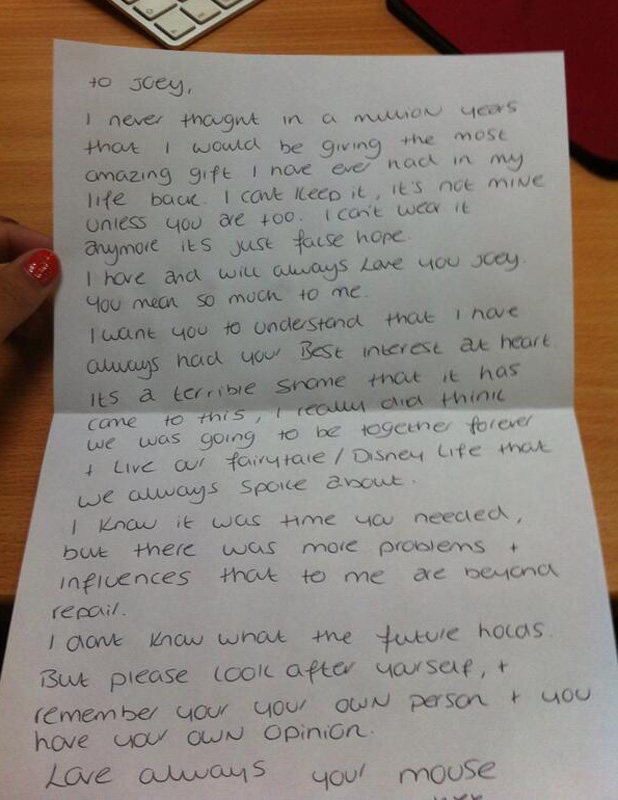 to Joey,
I never thought in a million years
that I would be giving the most
amazing gift I have ever had in my
life back. I cant keep it, it's not mine
unless you are too. I can't wear it
anymore its just false hope.
I have and will always Love you Joey.
You mean so much to me.
I want you to understand that I have
always had your Best interest at heart.
its a terrible shame that it has
came to this, I really did think
we was going to be together forever
+ Live our fairytale / Disney Life that
we always spoke about.
I know it was time you needed,
but there was more problems +
influences that to me are beyond
repair.
I dont know what the future holds.
But please look after yourself, +
remember your your own person + you
have your own opinion.
Love always your mouse